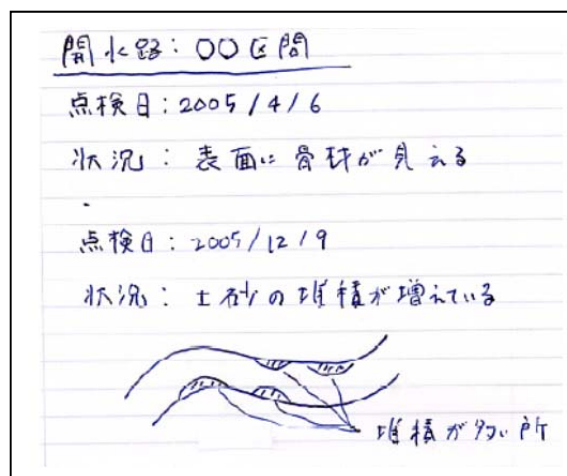 開水路:〇〇区間
点検日:2005/4/6
状況:表面に骨材が見える
・
点検日:2005/12/9
状況:土砂の堆積が増えている
堆積が多い所